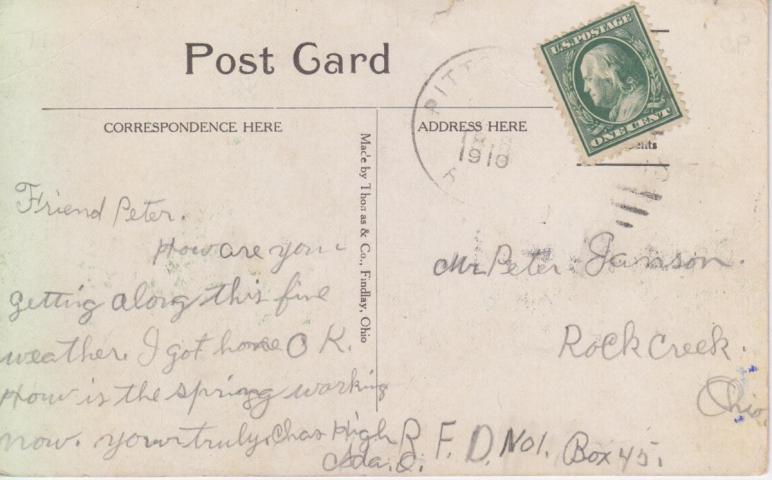 Post Card
U.S. POSTAGE
ONE CENT
PITTS
1910
CORRESPONDENCE HERE
ADDRESS HERE
Made by Thomas & Co., Findlay, Ohio
Friend Peter.
How are you
getting along this fine
weather. I got home O K.
How is the spring working
now. yours truly. Chas High
Ada. O.
Mr. Peter Janson.
Rock Creek.
Ohio.
R. F. D. No 1. Box 45.